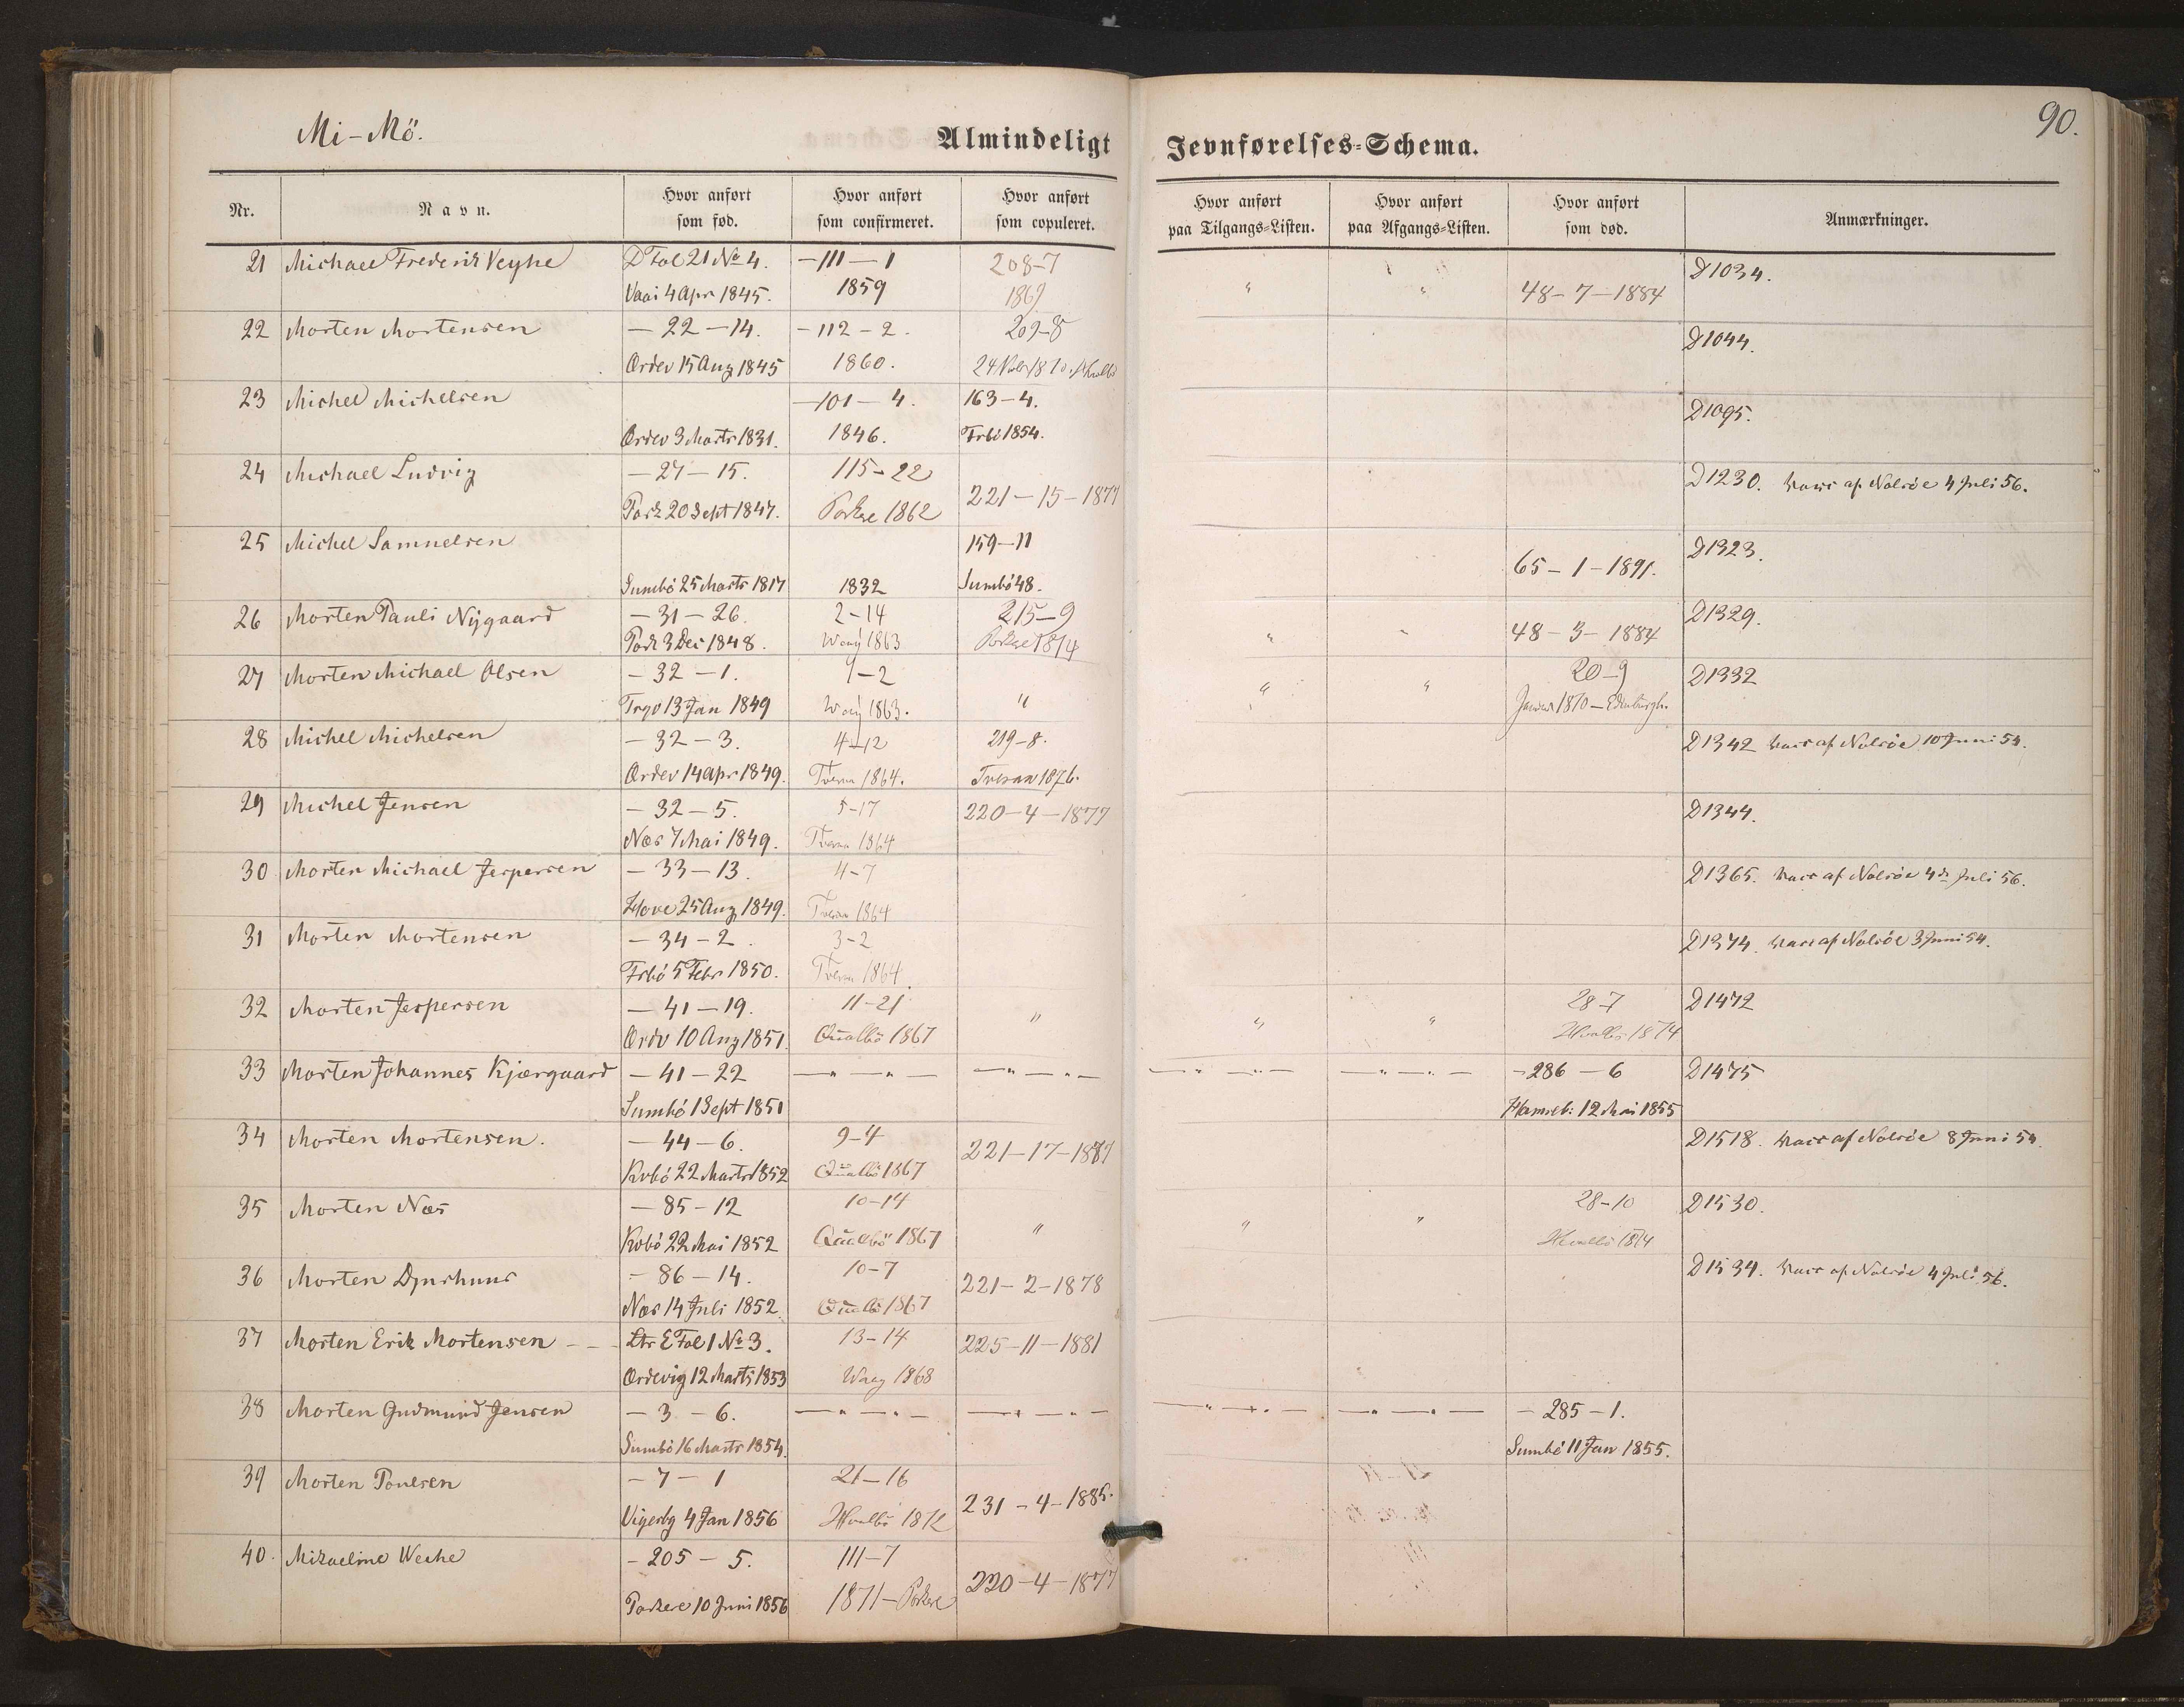 Mi-Mö.
90.
Almindeligt Jevnførelses-Schema.
Nr. Navn. Hvor anført som fød. Hvor anført som confirmeret. Hvor anført som copuleret. Hvor anført paa Tilgangs-Listen. Hvor anført paa Afgangs-Listen. Hvor anført som død. Anmærkninger.
21 Michael Frederik Veyhe D Fol 21 No 4. —111—1 208-7 D1034.
Vaai 4 Apr 1845. 1859 1869 " " 48-7-1884
22 Morten Mortensen —22—14. —112—2. 209-8 D1044.
Ordev 15 Aug 1845 1860. 24
23 Michel Michelsen —101—4. 163-4. D1095.
Ordev 3 Marts 1831. 1846. Frbö 1854.
24 Michael Ludvig —27—15. 115-22 D1230. Vacc af Nolsöe 4 Juli 56.
Pork 20 Sept 1847. Porkere 1862 221-15-1877
25 Michel Samuelsen 159-11 D1323.
Sumbö 25 Marts 1817 1832 Sumbö 48. 65-1-1891.
26 Morten Pauli Nygaard —31—26. 2-14 215-9 D1329.
Pork 3 Dec 1848. Waaj 1863 Porkere 1874 " " 48-3-1884
27 Morten Michael Olsen —32—1. 1-2 20-9 D1332
13 Jan 1849 Waaj 1863. " " " Januar 1870 — Edinburgh.
28 Michel Michelsen —32—3. 4-12 219-8. D1342 Vacc af Nolsöe 10 Juni 54.
Ordev 14 Apr 1849. Tveraa 1864. Tveraa 1876.
29 Michel Jensen —32—5. 5-17 220-4-1877 D1344.
Næs 7 Mai 1849. Tveraa 1864
30 Morten Michael Jespersen —33—13. 4-7 D1365. Vacc af Nolsöe 4de Juli 56.
Hove 25 Aug 1849. Tveraa 1864
31 Morten Mortensen —34—2. 3-2 D1374. Vacc af Nolsöe 3 Juni 54.
Frbö 5 Febr 1850. Tveraa 1864.
32 Morten Jespersen —41—19. 11-21 " " " 28-7 D1472
Ordv 10 Aug 1851. Qualbö 1867 Hvalbö 1874
33 Morten Johannes Kjærgaard —41—22 —"—"— —"—"— —"—"— —"—"— —286—6 D1475
Sumbö 1 Sept 1851 12 Mai 1855
34 Morten Mortensen. —44—6. 9-4 221-17-1877 D1518. Vacc af Nolsöe 8 Juni 54.
Kvbö 22 Marts 1852 Qualbö 1867
35 Morten Næs —85—12 10-14 28-10 D1530.
Kvbö 22 Mai 1852 Qualbö 1867 " " " Hvalbö 1874
36 Morten Djurhuus —86—14. 10-7 221-2-1878 D1534. Vacc af Nolsöe 4 Juli 56.
Næs 14 Juli 1852. Qualbö 1867
37 Morten Erik Mortensen — — Ltr E Fol 1 No 3. 13-14 225-11-1881
Ordevig 12 Marts 1853 Waag 1868
38 Morten Gudmund Jensen —3—6. —"—"— —"—"— —"—"— —"—"— —285—1.
Sumbö 16 Marts 1854. Sumbö 11 Jan 1855.
39 Morten Poulsen —7—1 21-16 231-4-1885.
Vigerbg 4 Jan 1856 Hvalbö 1872
40. Mikaeline Weihe —205—5. 111-7 220-4-1877
Porkere 10 Juni 1856 1871—Porkere